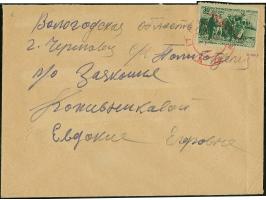 Вологодская область
г. Череповец с/с Политотдел
п/о Заякошье
Кожевниковой
Евдокие Егоровне